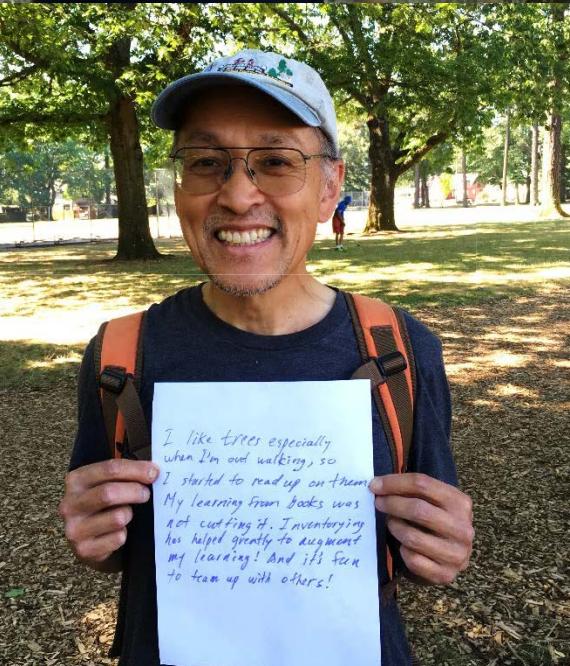 I like trees especially
when I'm out walking, so
I started to read up on them
My learning from books was
not cutting it. Inventorying
has helped greatly to augment
my learning! And it's fun
to team up with others!